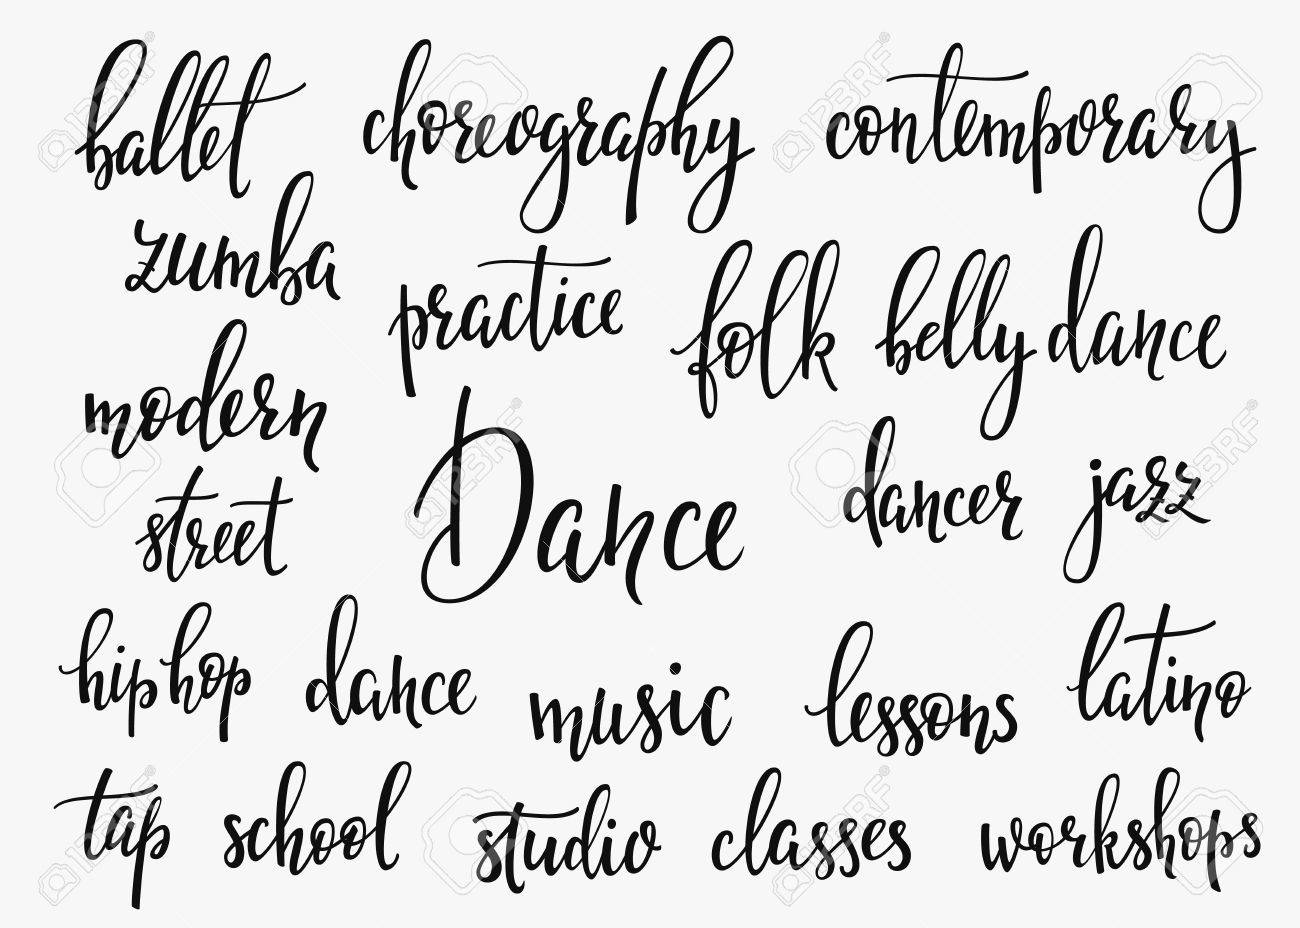 ballet choreography contemporary
zumba practice folk belly dance
modern
street Dance dancer jazz
hip hop dance music lessons latino
tap school studio classes workshops
123RF
123RF
123RF
123RF
123RF
123RF
123RF